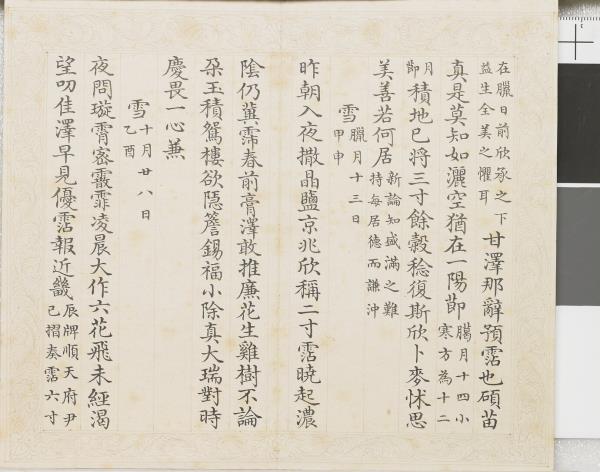 在臘日前欣承之下
益生全美之懼耳
甘澤那辭預霑也碩苗
真是莫知如灑空猶在一陽節
臈月十四小
寒方為十二
月
節
積地已將三寸餘穀稔復斯欣卜麥怵思
美善若何居
新論知盛滿之難
持每居德而謙沖
雪
臘月十三日
甲申
昨朝入夜撒晶鹽京兆欣稱二寸霑曉起濃
陰仍冀霈春前膏澤敢推廉花生雞樹不論
朶玉積鴛樓欲隱簷錫福小除真大瑞對時
慶畏一心兼
雪
十月廿八日
乙酉
夜問璇霄密霰霏凌晨大作六花飛未經渴
望叨佳澤早見優霑報近畿
辰牌順天府尹
已摺奏霑六寸